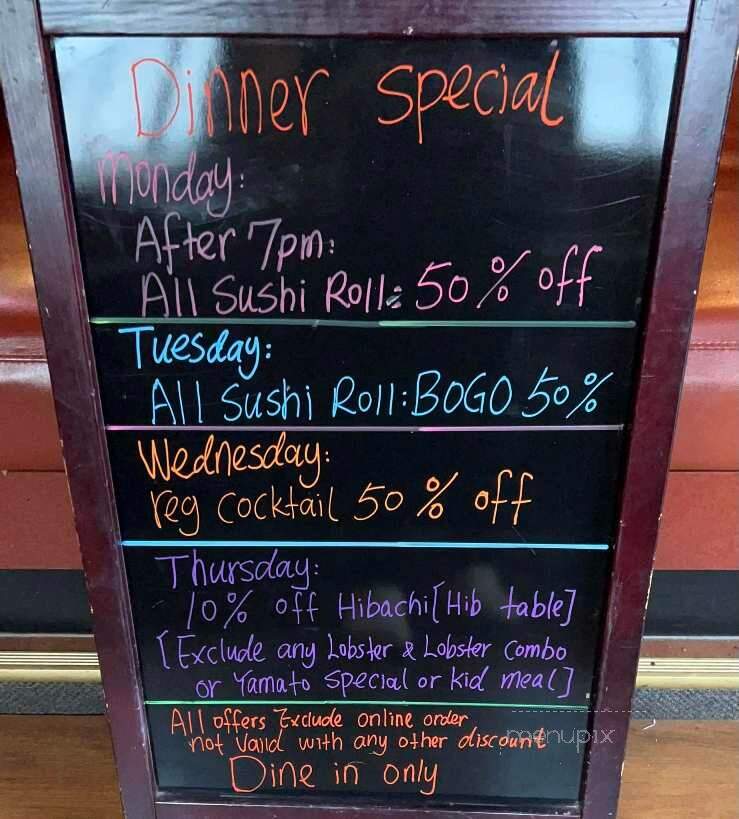 Dinner Special
Monday:
After 7pm:
All Sushi Roll: 50% off
Tuesday:
All Sushi Roll: BOGO 50%
Wednesday:
reg cocktail 50% off
Thursday:
10% off Hibachi [Hib table]
[Exclude any Lobster & Lobster combo
or Yamato Special or kid meal]
All offers Exclude online order
not Vaild with any other discount
menupix
Dine in only